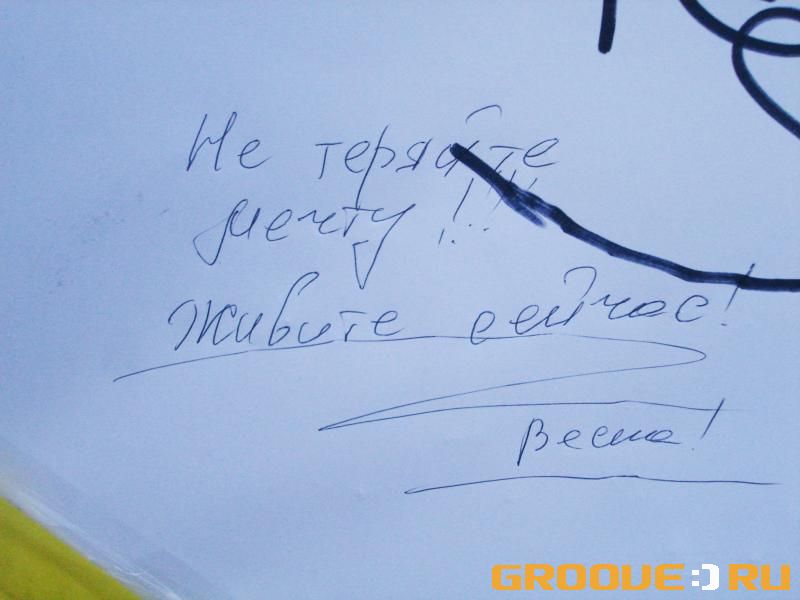 Не теряйте
мечту!!!
Живите сейчас!
Весна!
GROOVE:)RU